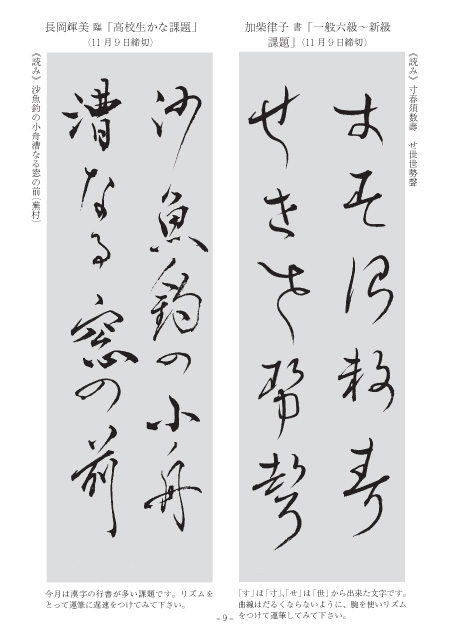 加柴律子 書「一般六級～新級
課題」(11月9日締切)
《読み》 寸春須数壽 せ世世勢聲
す
春
須
数
壽
せ
せ
世
勢
聲
「す」は「寸」、「せ」は「世」から出来た文字です。
曲線はだるくならないように、腕を使いリズム
をつけて運筆してみて下さい。
長岡輝美 臨「高校生かな課題」
(11月9日締切)
《読み》 沙魚釣の小舟漕なる窓の前(蕪村)
沙魚釣の小舟
漕なる窓の前
今月は漢字の行書が多い課題です。リズムを
とって運筆に遅速をつけてみて下さい。
- 9 -